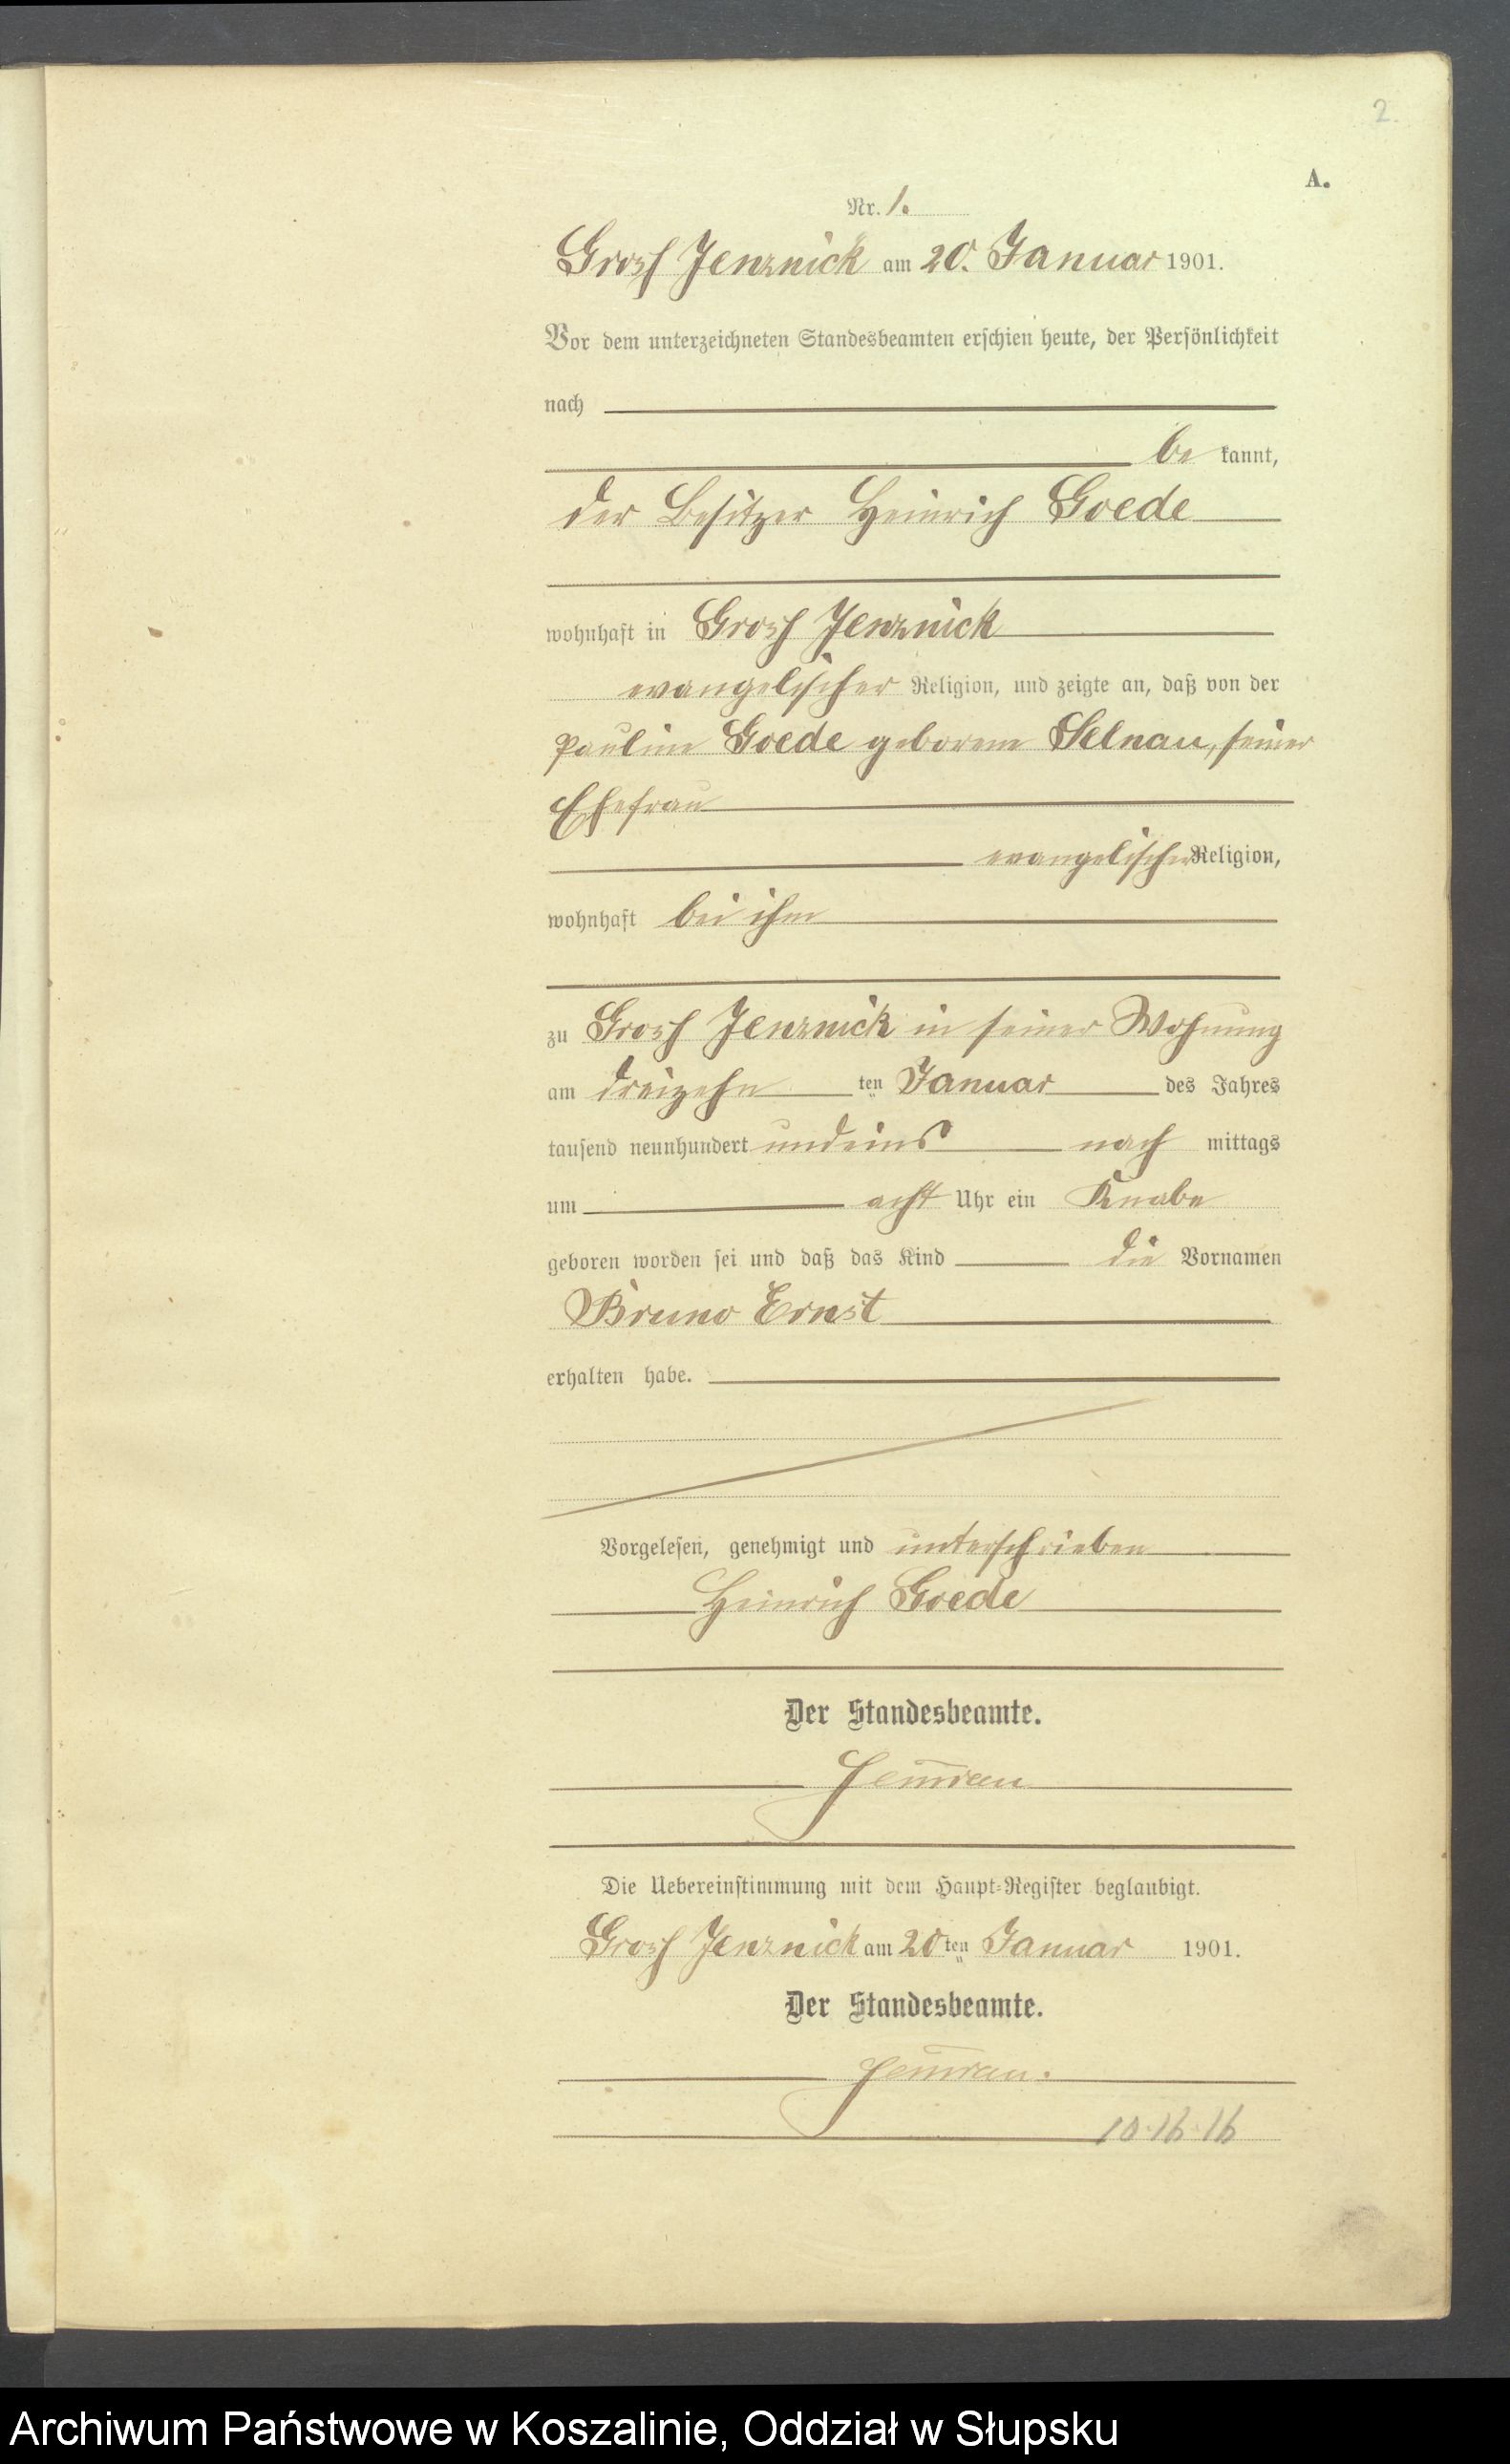 2.
A.
Nr. 1.
Groß Jenznick am 20. Januar 1901.
Vor dem unterzeichneten Standesbeamten erschien heute, der Persönlichkeit
nach
be kannt,
der Besitzer Heinrich Goede
wohnhaft in Groß Jenznick
evangelischer Religion, und zeigte an, daß von der
Pauline Goede geborene Selnau, seiner
Ehefrau
evangelischer Religion,
wohnhaft bei ihm
zu Groß Jenznick in seiner Wohnung
am dreizehn ten Januar des Jahres
tausend neunhundert undeins nach mittags
um acht Uhr ein Knabe
geboren worden sei und daß das Kind die Vornamen
Bruno Ernst
erhalten habe.
Vorgelesen, genehmigt und unterschrieben
Heinrich Goede
Der Standesbeamte.
Die Uebereinstimmung mit dem Haupt-Register beglaubigt.
Groß Jenznick am 20ten Januar 1901.
Der Standesbeamte.
10.16.16
Archiwum Państwowe w Koszalinie, Oddział w Słupsku